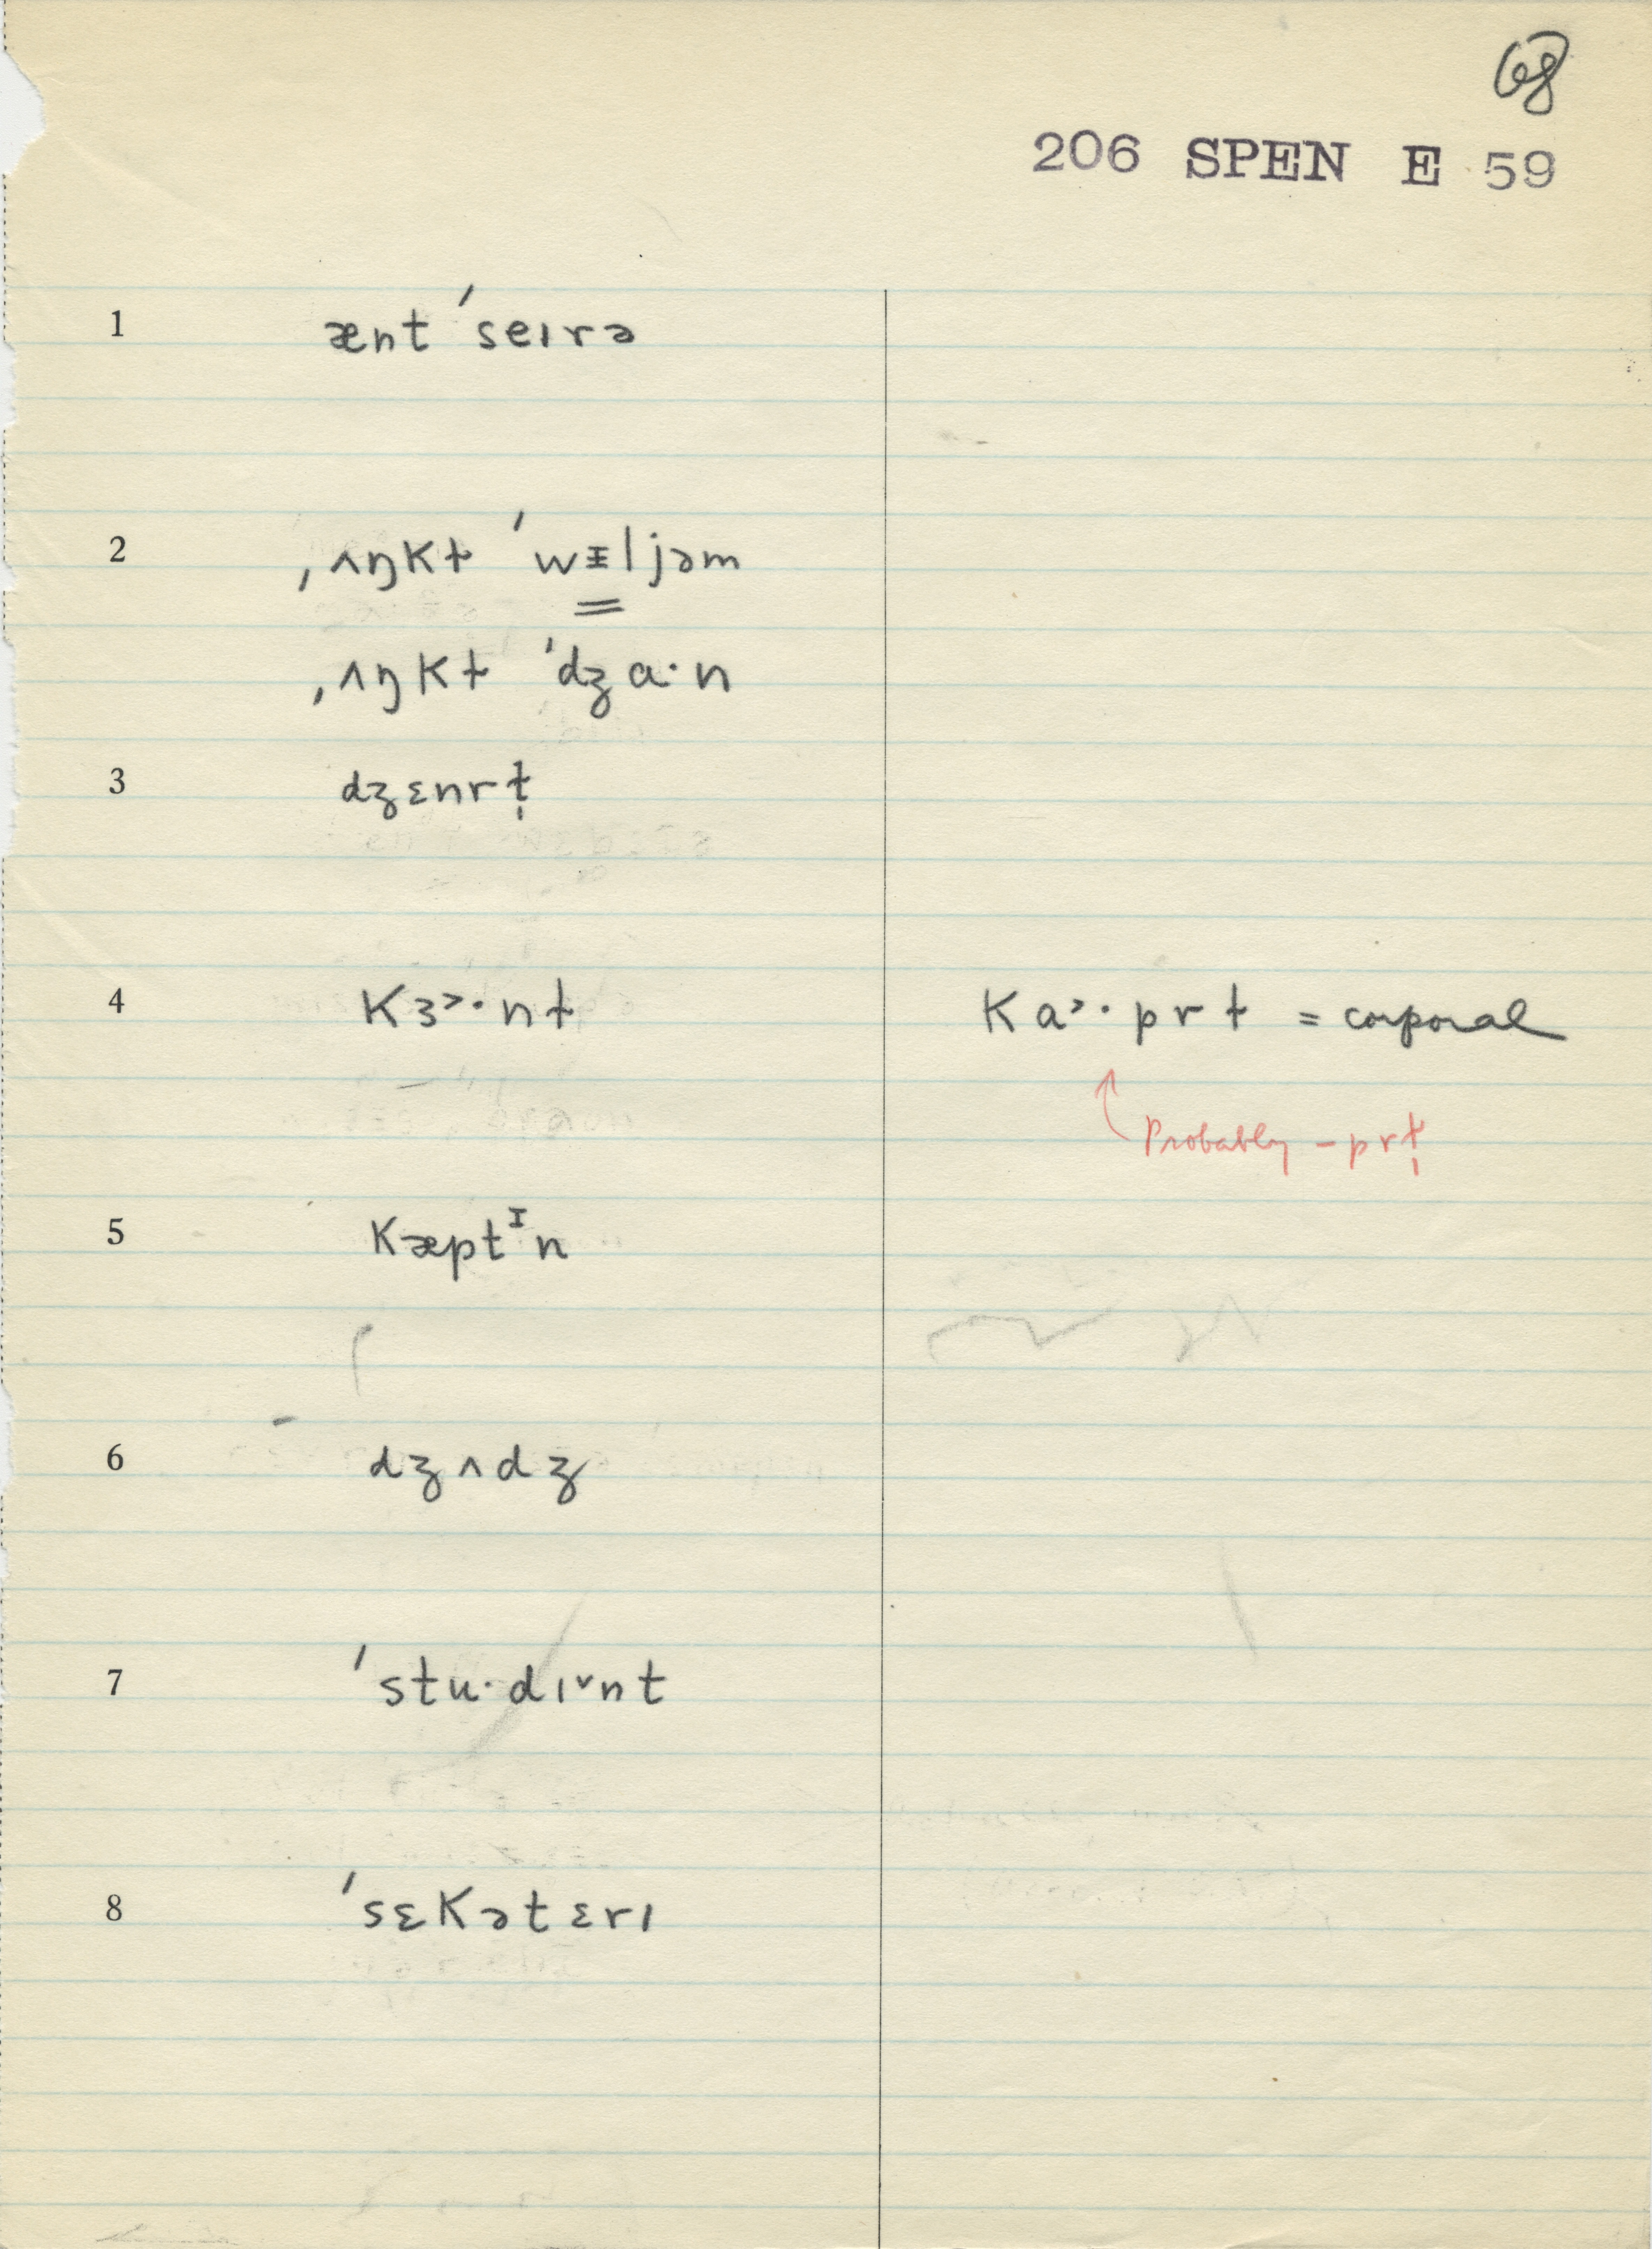 68
206 SPEN E 59
1 ænt ˈseɪrə
2 ˌʌŋkɫ ˈwᵻljəm
ˌʌŋkɫ ˈdʒɑ·n
3 dʒɛnrɫ̩
4 kɜ˃·nɫ kɑ˃·prɫ = corporal
Probably –prɫ̩
5 kæptᴵn
6 dʒʌdʒ
7 ˈstu·dɪ˅nt
8 ˈsɛkətɛrɪ